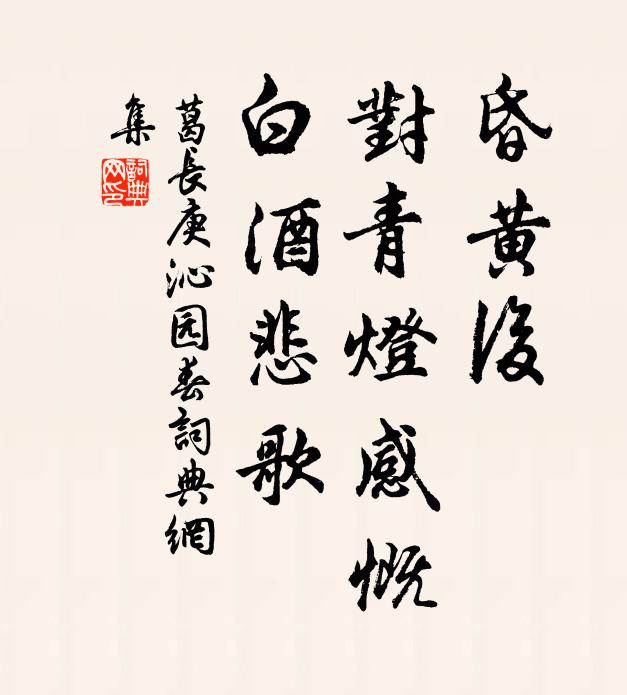 昏黃後
對青燈感慨
白酒悲歌
葛長庚沁园春詞典網
集
詞典網印